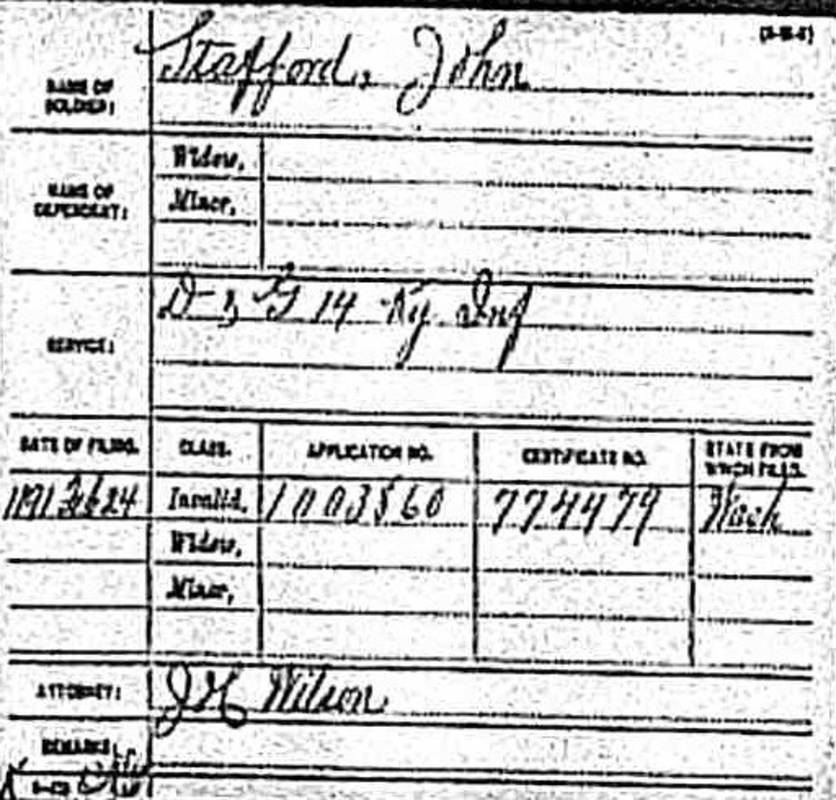 (3-111-1)
NAME OF SOLDIER: Stafford, John
NAME OF DEPENDENT: Widow,
Minor,
SERVICE: D & G 14 Ky Inf
DATE OF FILING. CLASS. APPLICATION NO. CERTIFICATE NO. STATE FROM WHICH FILED.
1891 Feb 24 Invalid, 1003860 774479 Wash
Widow,
Minor,
ATTORNEY: J H Wilson
REMARKS: